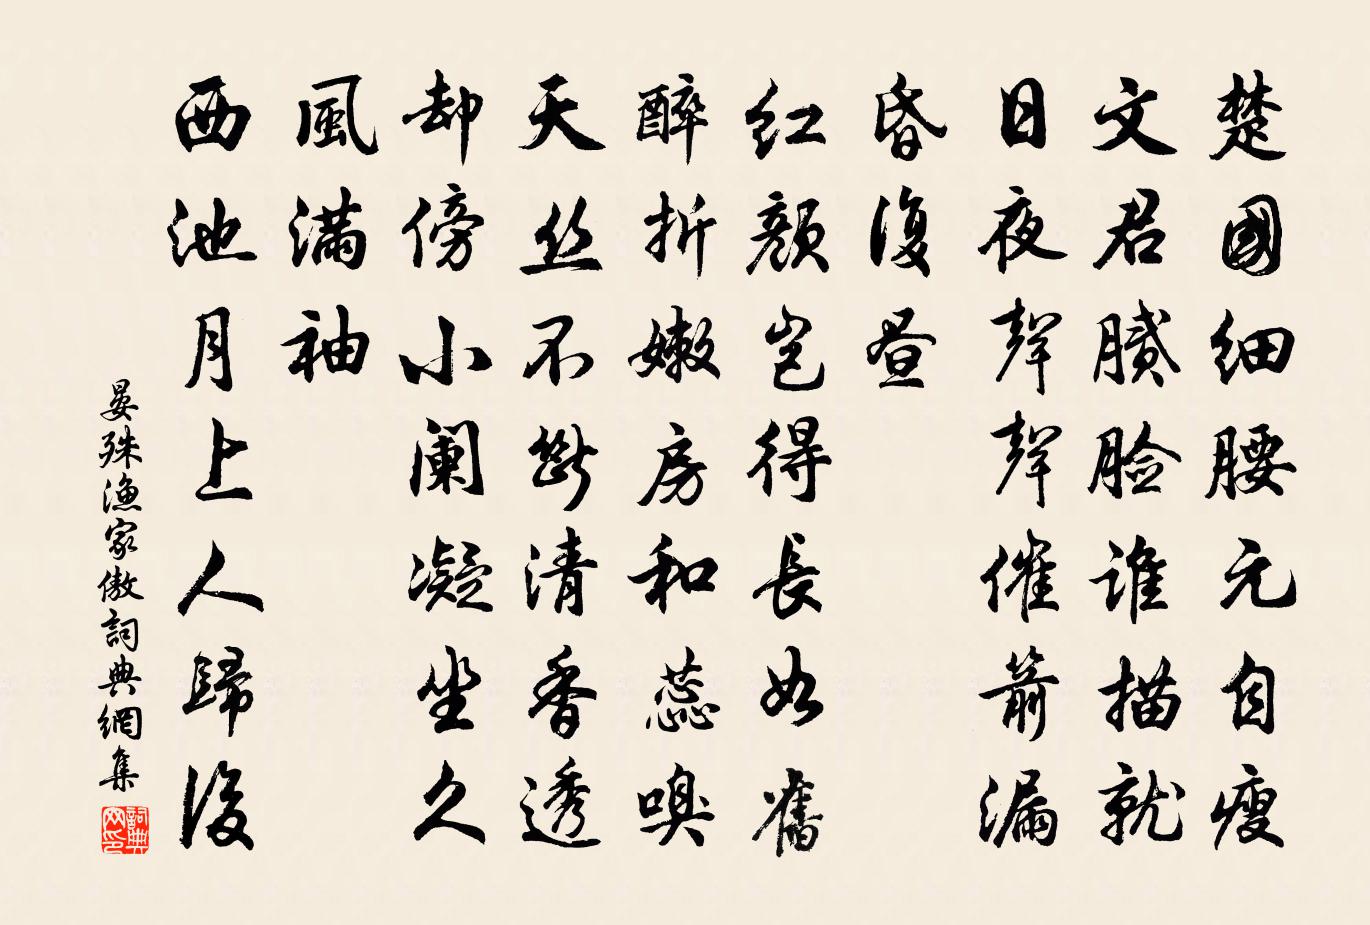 楚國细腰元自瘦
文君腻脸谁描就
日夜聲聲催箭漏
昏復昼
红顔岂得長如舊
醉折嫩房和蕊嗅
天丝不斷清香透
却傍小阑凝坐久
風满袖
西池月上人歸後
晏殊渔家傲詞典網集
詞典网印